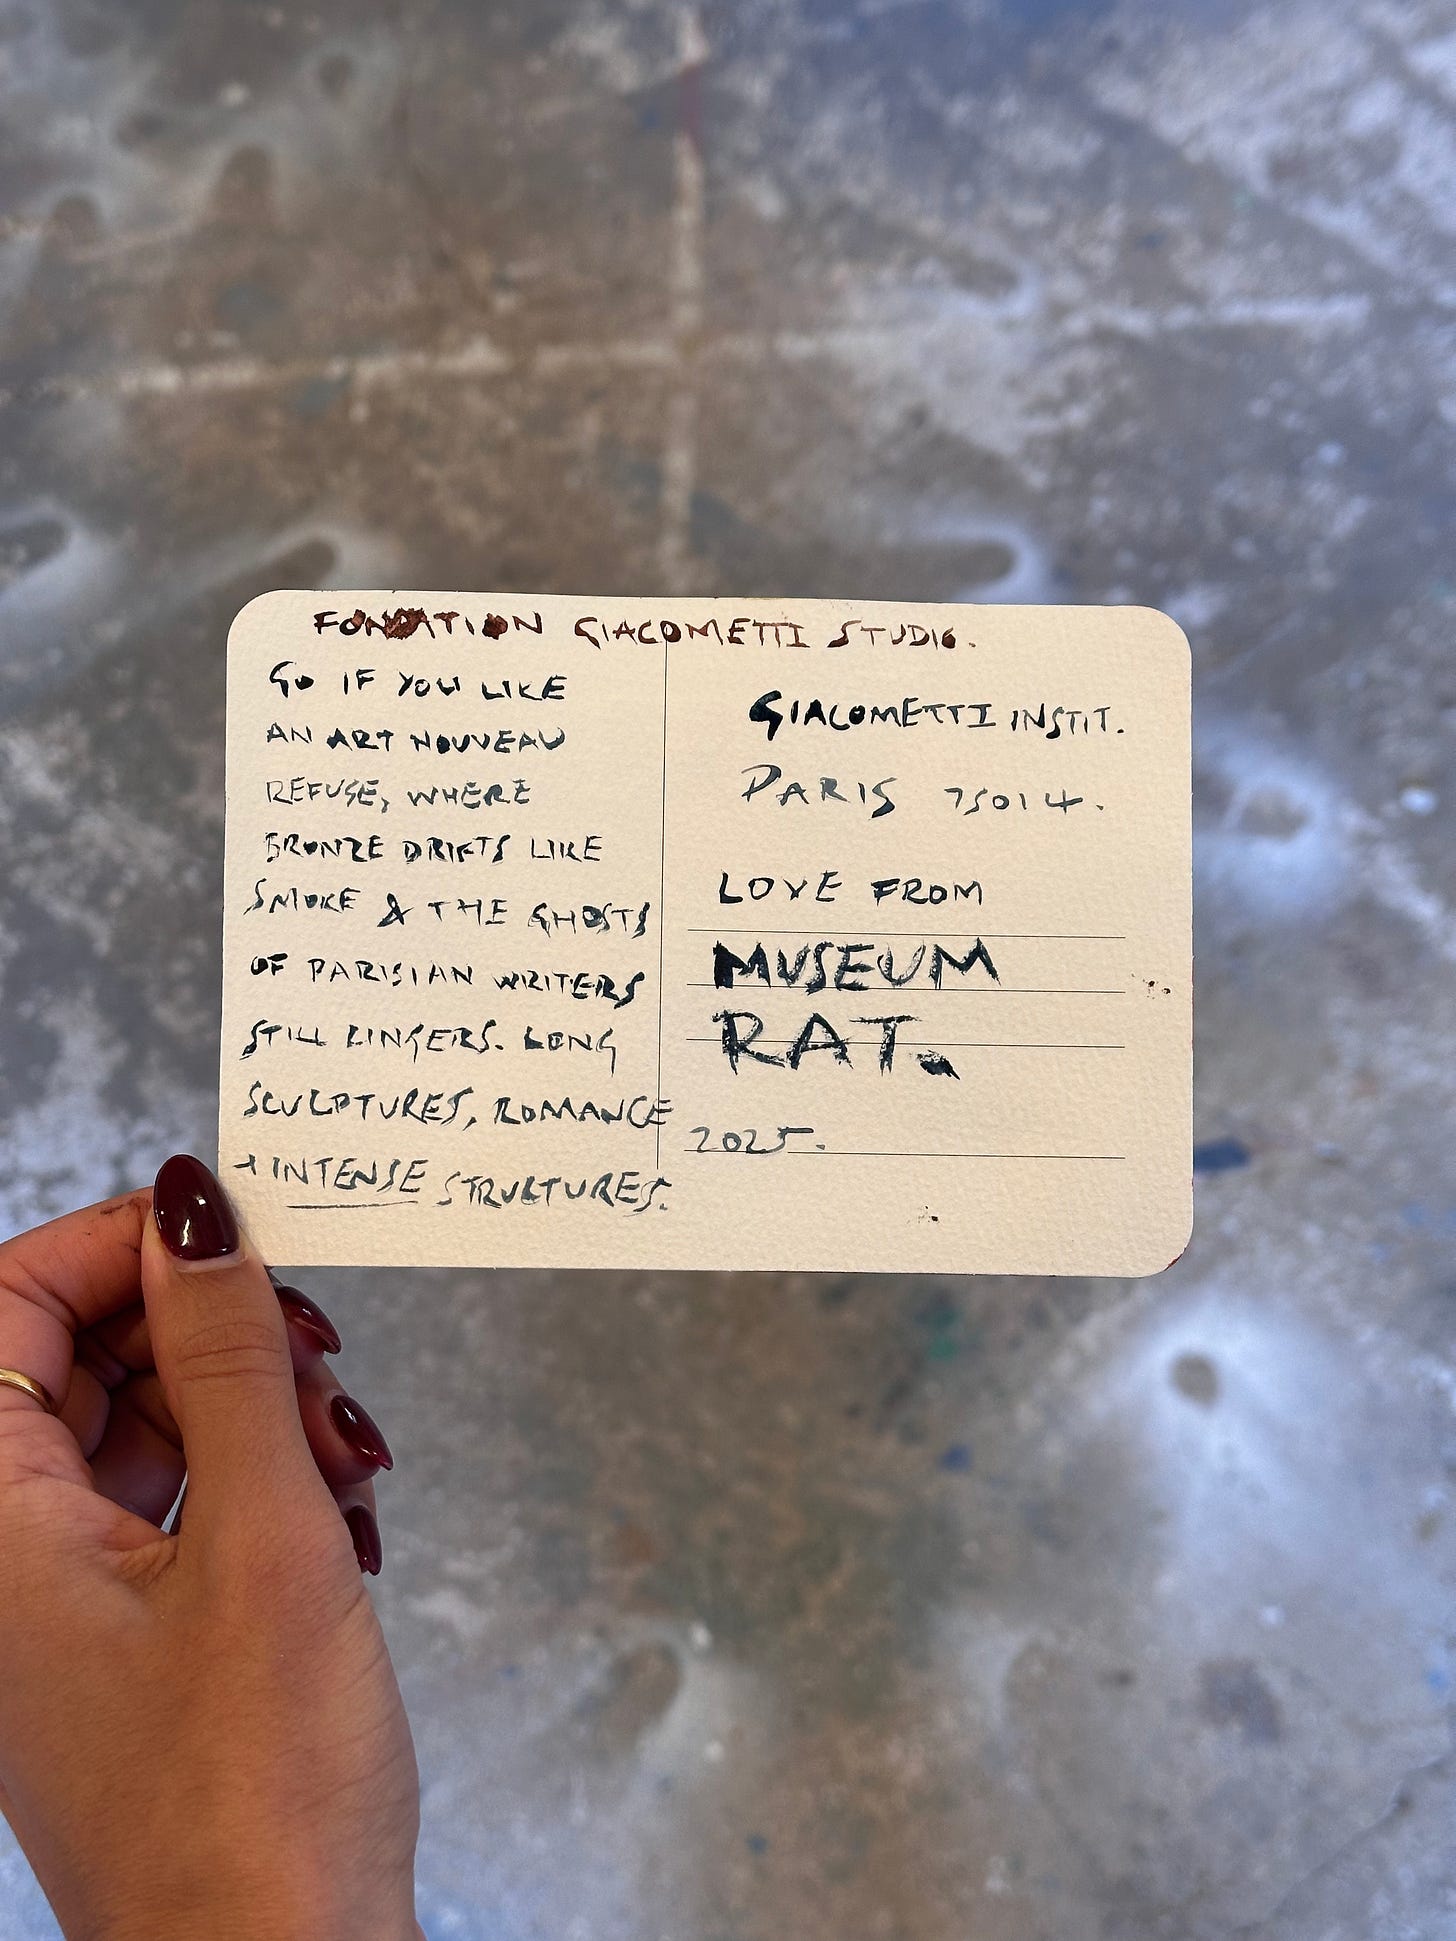 FONDATION GIACOMETTI STUDIO.
GO IF YOU LIKE
AN ART NOUVEAU
REFUSE, WHERE
BRONZE DRIFTS LIKE
SMOKE & THE GHOSTS
OF PARISIAN WRITERS
STILL LINGERS. LONG
SCULPTURES, ROMANCE
+ INTENSE STRUCTURES.
GIACOMETTI INSTIT.
PARIS 75014.
LOVE FROM
MUSEUM
RAT.
2025.